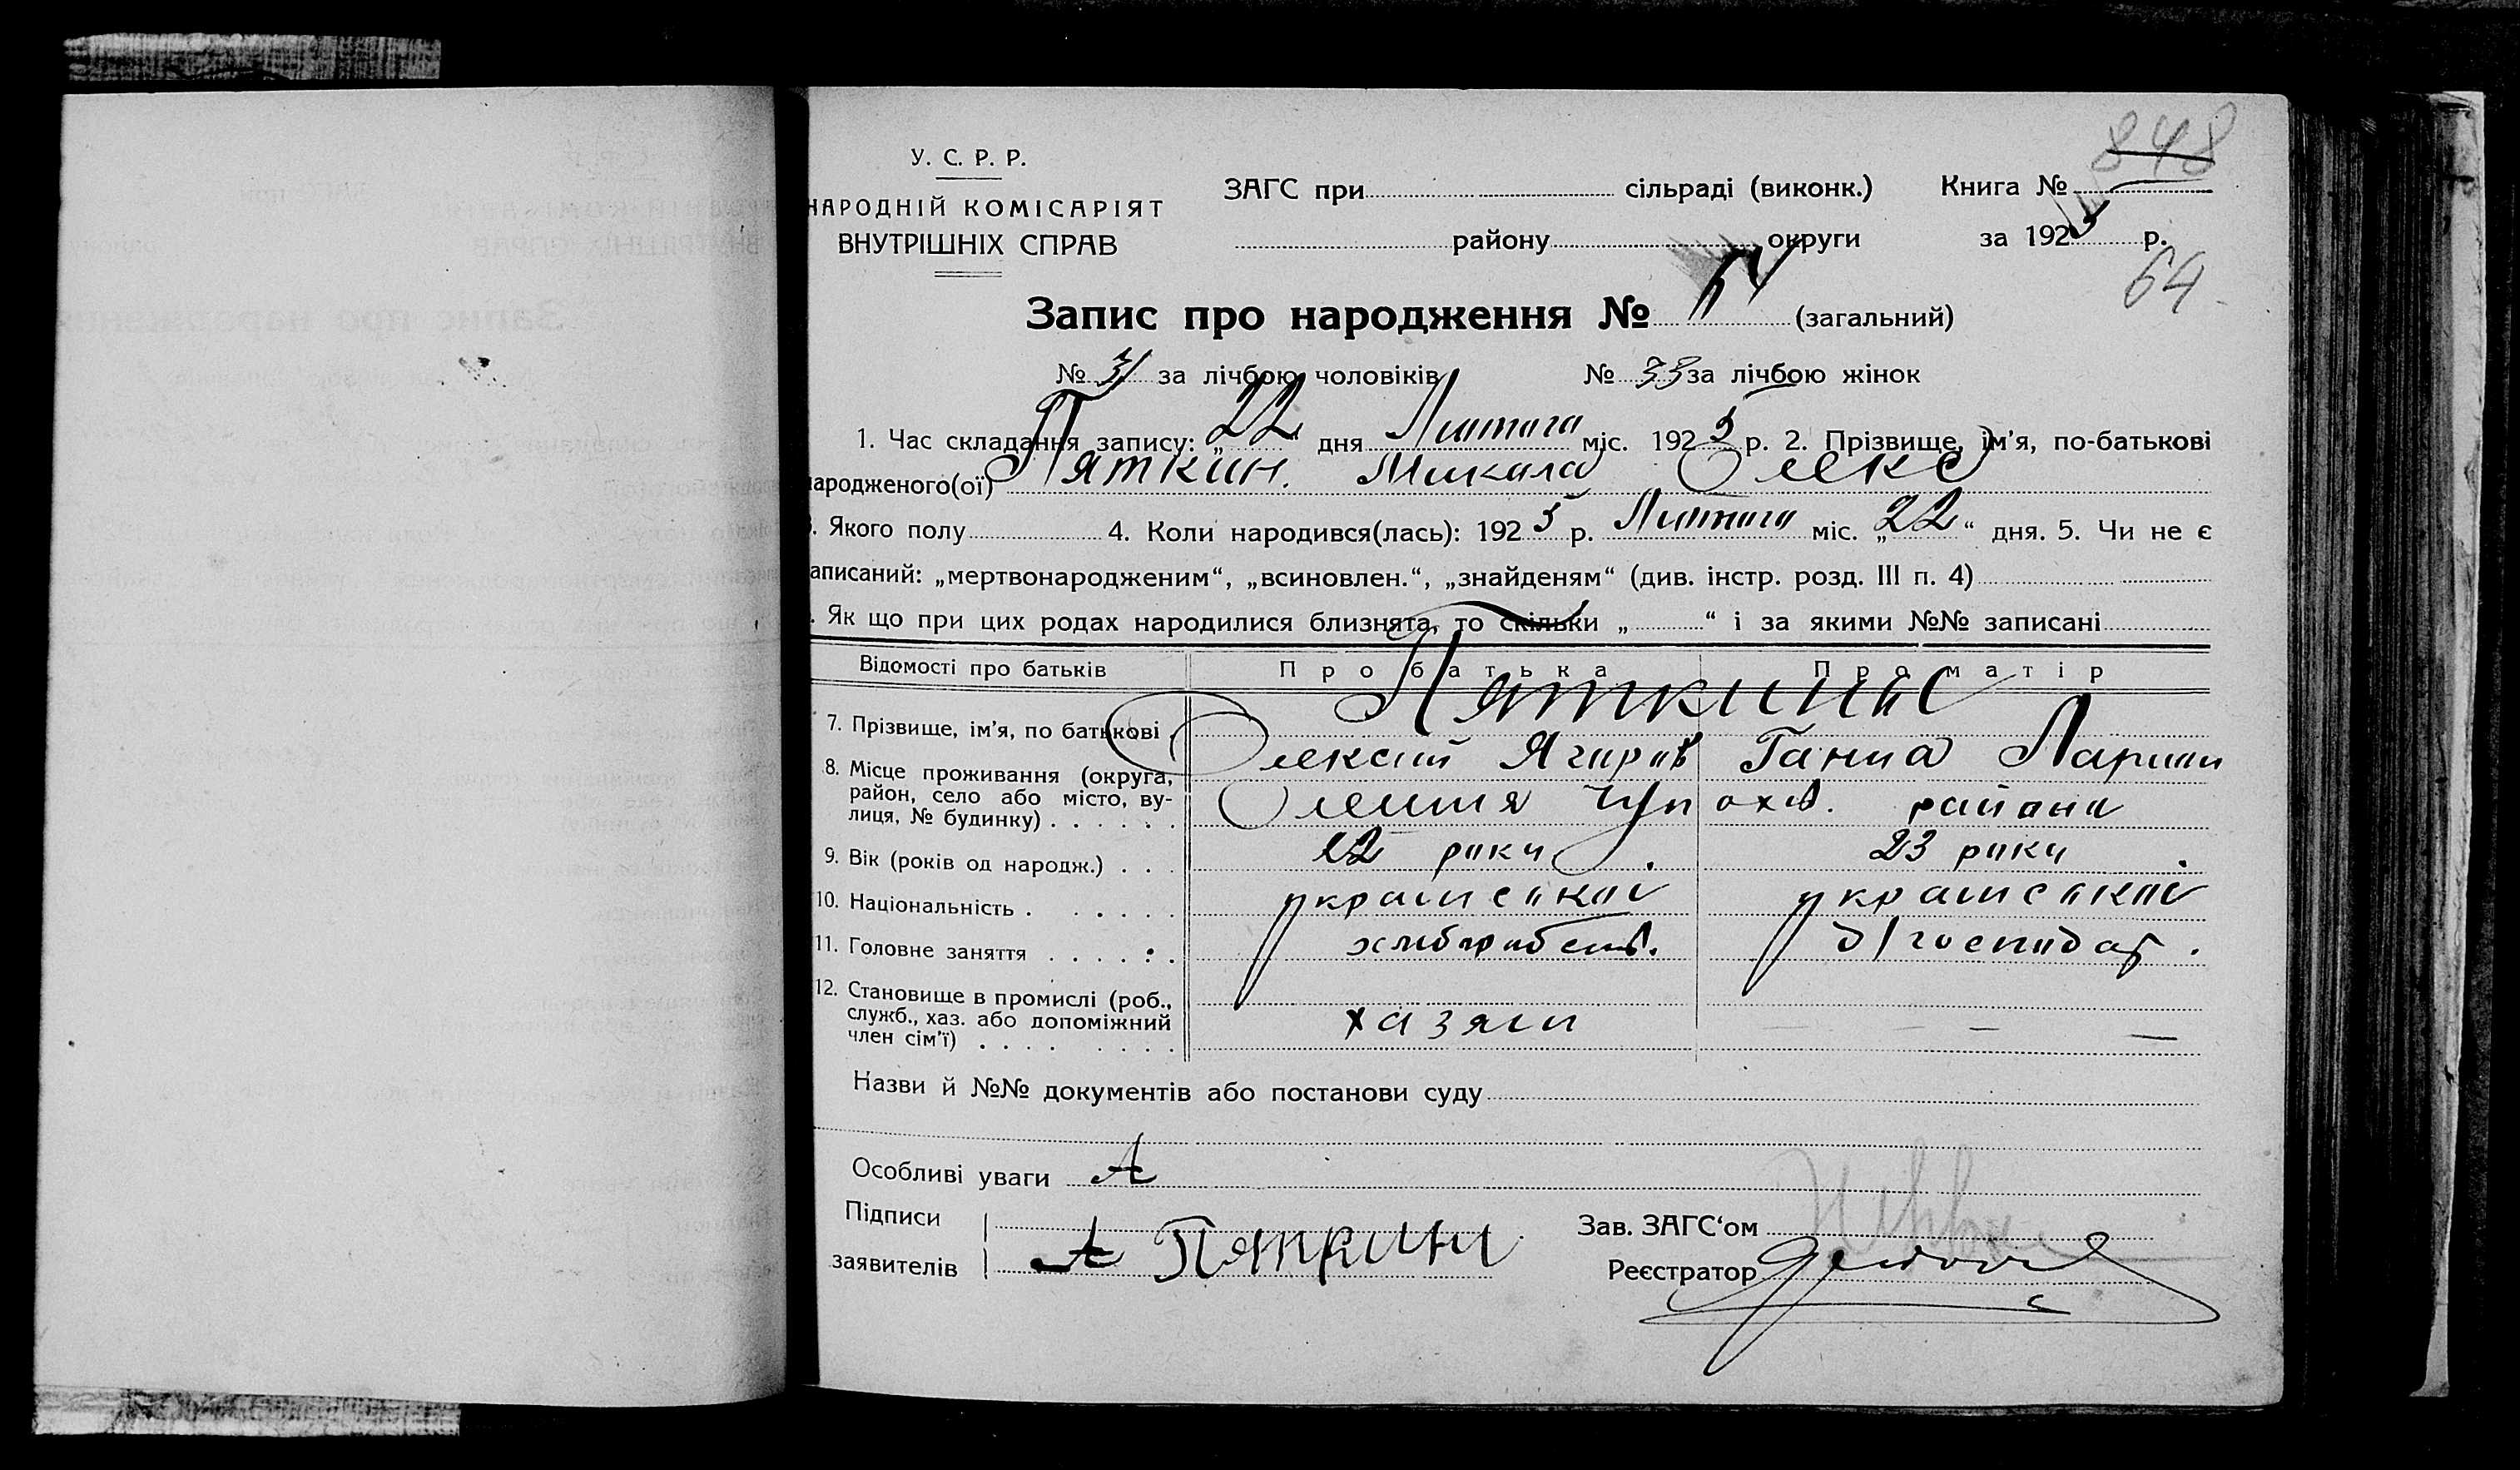 848
У. С. Р. Р.
НАРОДНІЙ КОМІСАРІЯТ
ВНУТРІШНІХ СПРАВ
ЗАГС при сільраді (виконк.) Книга №
району округи за 1925 р.
64
Запис про народження № 64 (загальний)
№ 31 за лічбою чоловіків № 33 за лічбою жінок
1. Час складання запису: „22“ дня Лютого міс. 1925 р. 2. Прізвище, ім'я, по-батькові
народженого(ої) Пяткин. Микола Олекс
3. Якого полу 4. Коли народився(лась): 1925 р. Лютого міс. „22“ дня. 5. Чи не є
записаний: „мертвонародженим“, „всиновлен.“, „знайденям“ (див. інстр. розд. III п. 4)
. Як що при цих родах народилися близнята, то скільки „ “ і за якими №№ записані
Відомості про батьків Про батька Про матір
Пяткини
7. Прізвище, ім'я, по батькові
Олексій Ягоров Ганна Ларион
8. Місце проживання (округа,
район, село або місто, ву-
лиця, № будинку)
Олешня Чупахов. района
9. Вік (років од народж.) 22 роки. 23 роки.
10. Національність української української
11. Головне заняття хлібороб д/господар.
12. Становище в промислі (роб.,
служб., хаз. або допоміжний
член сім'ї)
хазяин — —
Назви й №№ документів або постанови суду
Особливі уваги А
Підписи
заявителів А Пяткин
Зав. ЗАГС'ом
Реєстратор